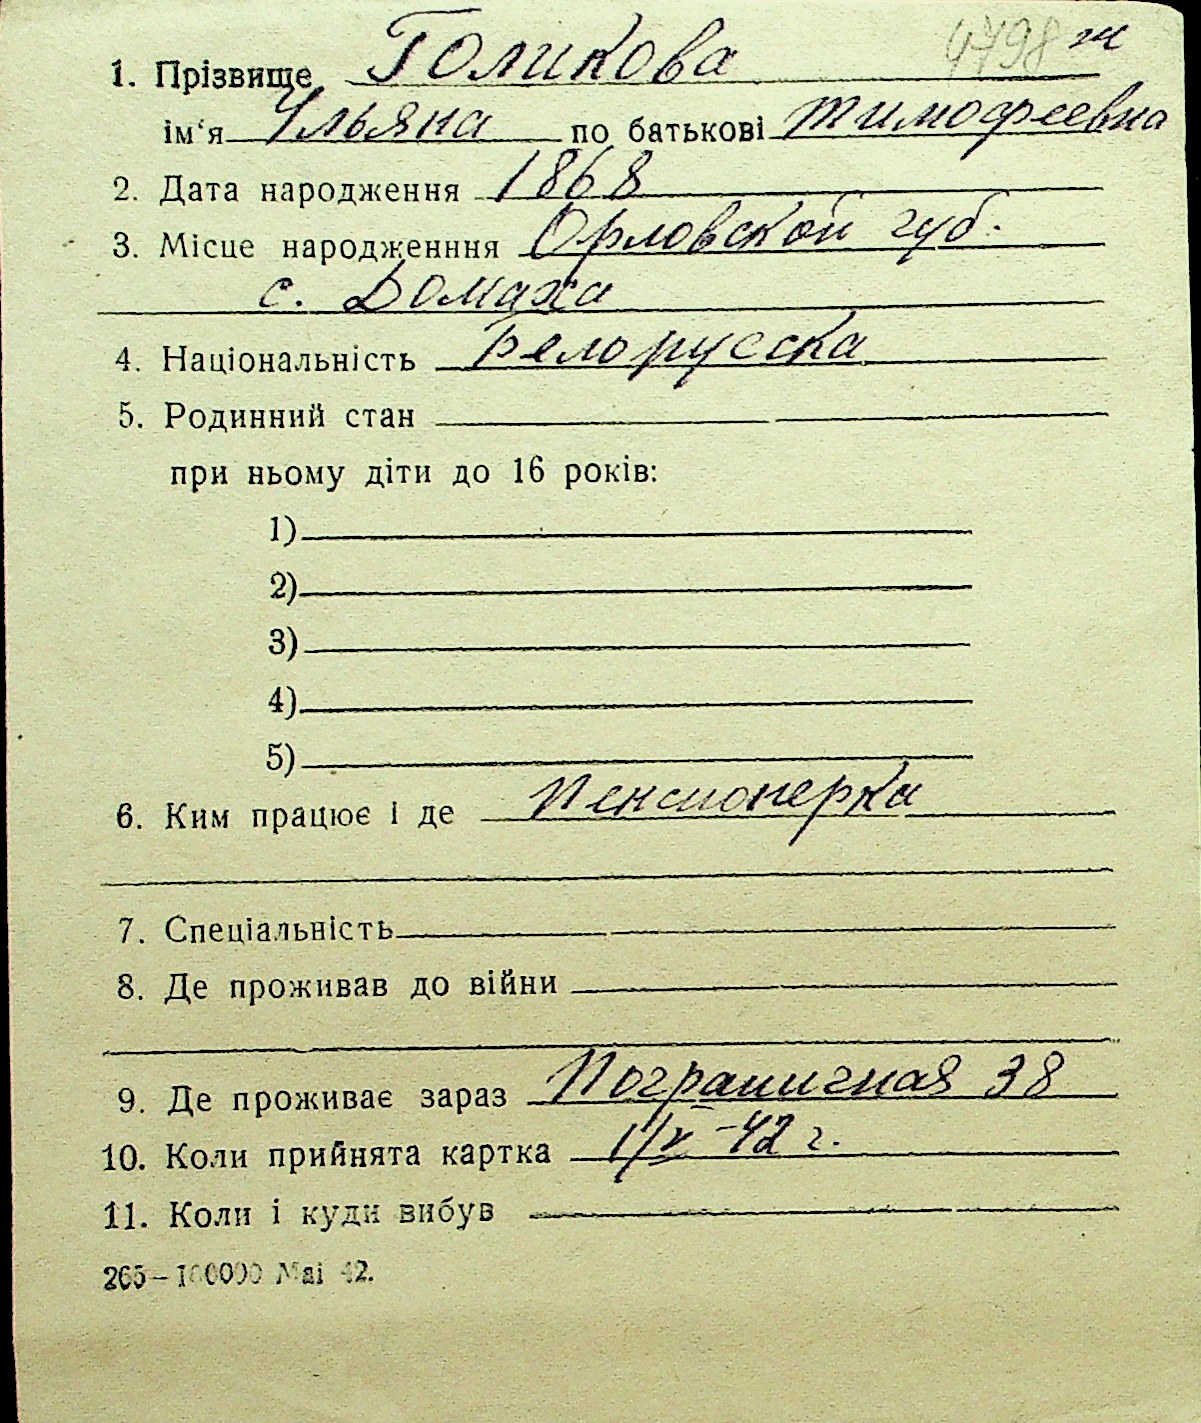 4798 ж
1. Прізвище Голикова
ім'я Ульяна по батькові Тимофеевна
2. Дата народження 1868
3. Місце народженння Орловской губ.
с. Домаха
4. Національність Белорусска
5. Родинний стан
при ньому діти до 16 років:
1)
2)
3)
4)
5)
6. Ким працює і де Пенсионерка
7. Спеціальність
8. Де проживав до війни
9. Де проживає зараз Пограничная 38
10. Коли прийнята картка 1/V-42 г.
11. Коли і куди вибув
265—100000 Mai 42.